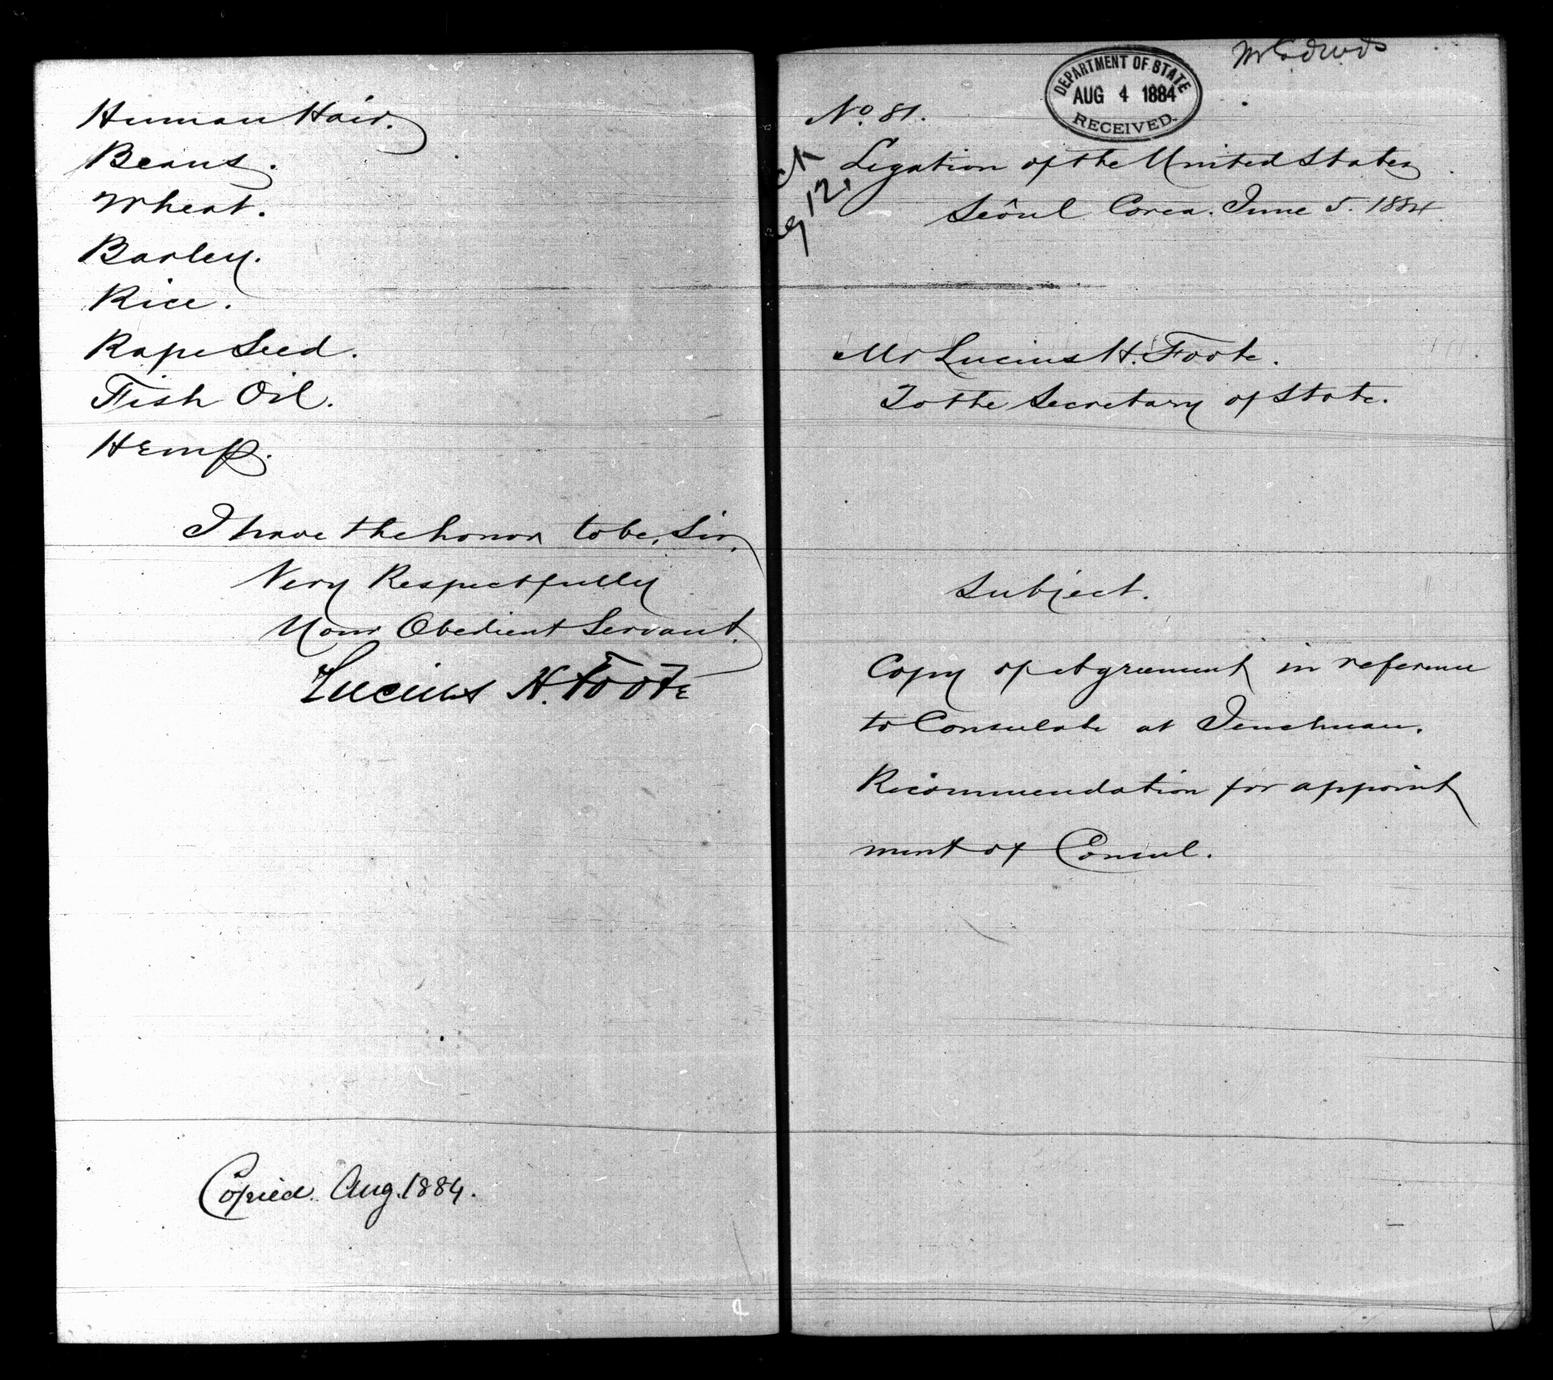 Human Hair.
Beans.
Wheat.
Barley.
Rice.
Rape Seed.
Fish Oil.
Hemp.
I have the honor to be, Sir,
Very Respectfully
Your Obedient Servant.
Lucius H. Foote
Copied. Aug. 1884.
DEPARTMENT OF STATE
AUG 4 1884
RECEIVED.
No. 81.
Legation of the United States
Seôul Corea. June 5. 1884
12,
Mr Lucius H. Foote.
To the Secretary of State.
Subject.
Copy of Agreement in reference
to Consulate at Jenchuan.
Recommendation for appoint
ment of Consul.